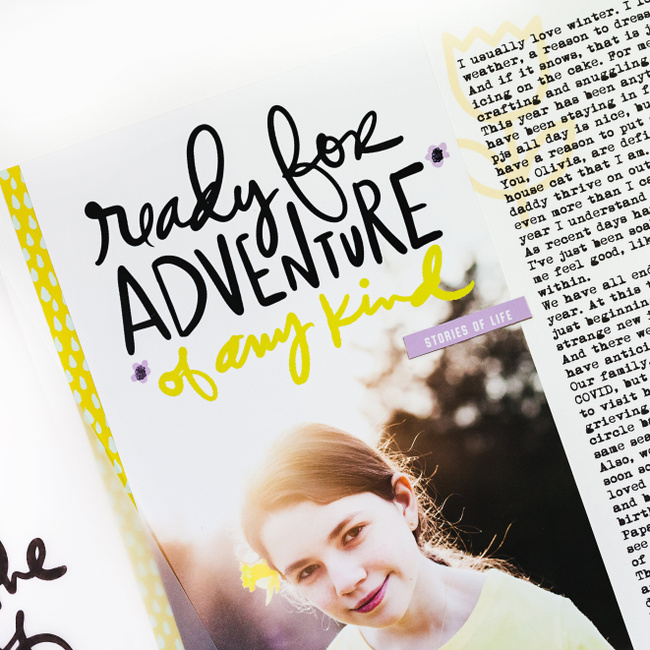 ready for
ADVENTURE
of any kind
STORIES OF LIFE
I usually love winter. I
weather, a reason to dress
And if it snows, that is
icing on the cake. For me
crafting and snuggling
This year has been
have been staying in
pjs all day is nice, but
have a reason to put
You, Olivia, are
house cat that I am.
daddy thrive on
even more than I
year I understand
As recent days
I've just been
me feel good,
within.
We have all
year. At this
just beginning
strange new
And there
have
Our family
COVID, but
to visit
grieving
circle
same
Also,
soon
loved
and
of
he